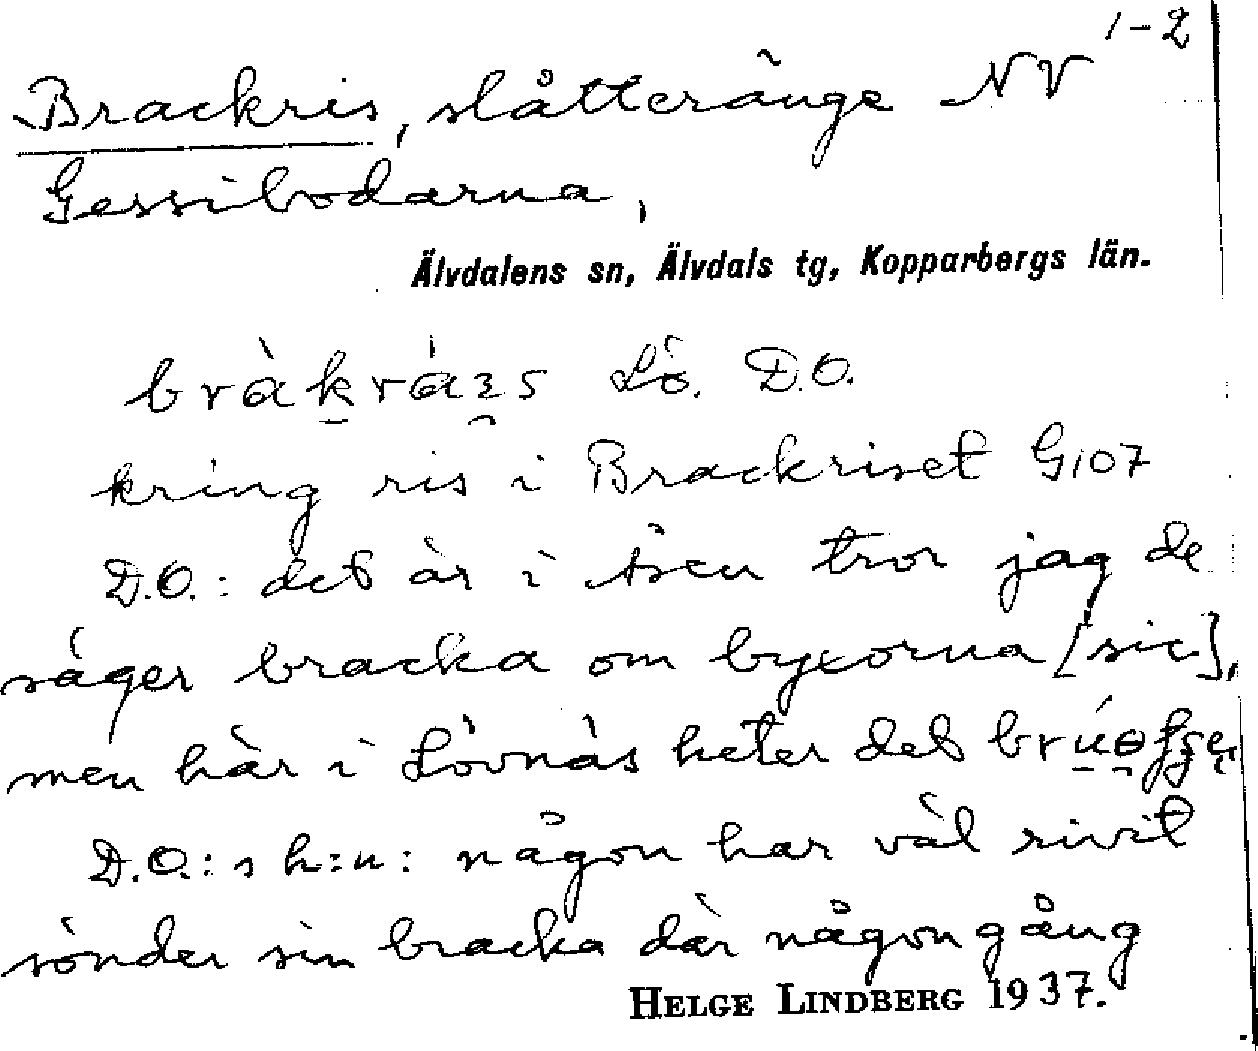 1-2
Brackris, slåtteränge NV
Gessibodarna,
Älvdalens sn, Älvdals tg, Kopparbergs län.
Lö. D.O.
kring ris i Brackriset G107
D.O.: det är i Åsen tror jag de
säger bracka om byxorna [sic],
men här i Lövnäs heter det
D.O.: s h:n: någon har väl rivit
sönder sin bracka där någon gång
HELGE LINDBERG 1937.